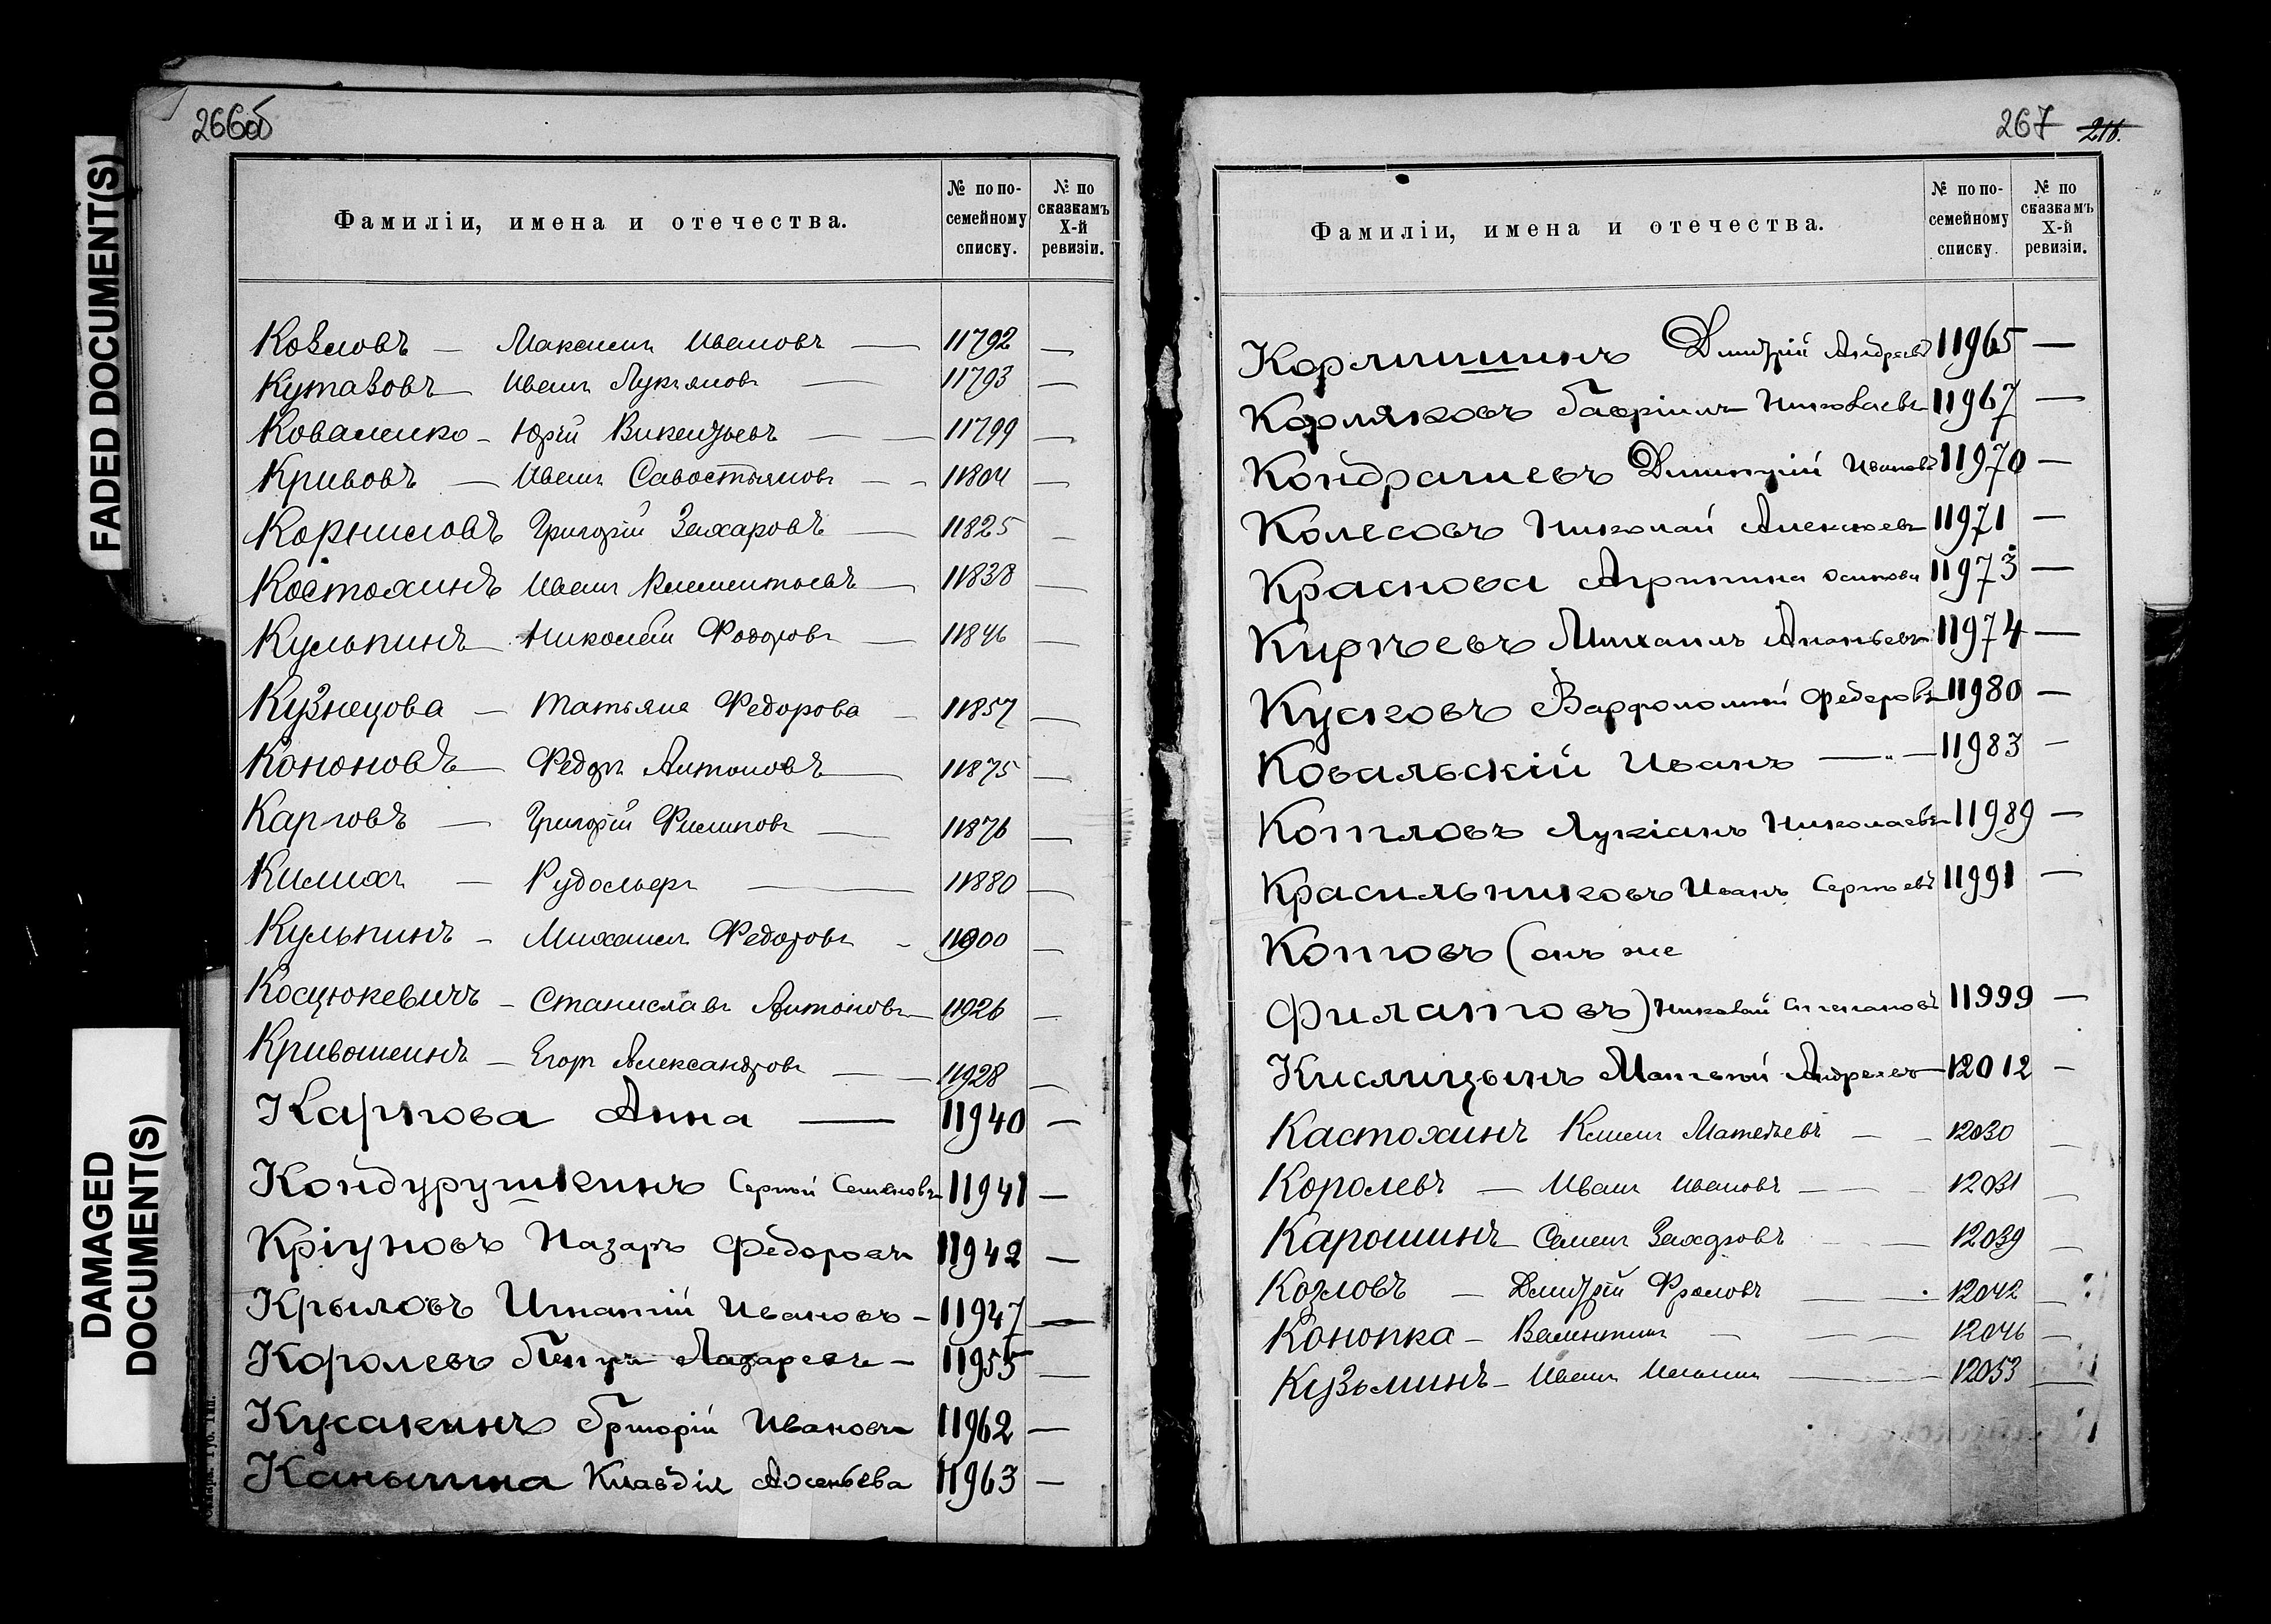 266об
Фамиліи, имена и отечества.
№ по по-
семейному
списку.
№ по
сказкамъ
X-й
ревизіи.
Козловъ — Максимъ Ивановъ — 11792 —
Кутазовъ — Иванъ Лукьяновъ — 11793 —
Коваленко - Юрій Викентьевъ — — 11799 —
Кривовъ — Иванъ Савостьяновъ — - 11804 —
Корниловъ Григорій Захаровъ — 11825 —
Костохинъ Иванъ Клементьевъ — 11838 —
Кульпинъ — Николай Федоровъ — 11846 —
Кузнецова — Татьяна Федорова - 11857 —
Кононовъ — Федоръ Антоновъ — 11875 —
Карповъ — Григорій Филиповъ — 11876 —
Килихъ — Рудольфъ — 11880 —
Кульпинъ - Михаилъ Федоровъ - 11900 —
Косцюкевичъ - Станиславъ Антоновъ — 11926 —
Кривошеинъ - Егоръ Александровъ — — 11928 —
Карпова Анна — 11940 —
Кондурушкинъ Сергѣй Семеновъ 11941 —
Кріуновъ Назаръ Федоровъ 11942 —
Крыловъ Игнатій Ивановъ - 11947 —
Королевъ Петръ Лазаревъ - 11955 —
Кусакинъ Григорій Ивановъ 11962 —
Каныгина Клавдія Арсеньева 11963 —
DAMAGED
DOCUMENT(S)
FADED DOCUMENT(S)
267 216.
Фамиліи, имена и отечества.
№ по по-
семейному
списку.
№ по
сказкамъ
X-й
ревизіи.
Кормишинъ Дмитрій Андреевъ 11965 —
Корляковъ Гавріилъ Николаевъ 11967 —
Кондрашевъ Димитрій Ивановъ 11970 —
Колесовъ Николай Алексѣевъ 11971 —
Краснова Агрипина Осипова 11973 —
Кирѣевъ Михаилъ Ананьевъ 11974 —
Кусковъ Варфоломѣй Федоровъ 11980 —
Ковальскій Иванъ — „ — 11983 —
Котловъ Лукіанъ Николаевъ 11989 —
Красильниковъ Иванъ Сергѣевъ 11991 —
Котовъ (онъ же
Филатовъ) Николай Степановъ 11999 —
Кислицынъ Матвѣй Андреевъ 12012 —
Кастохинъ Климъ Матвѣевъ — - 12030 —
Королевъ — Иванъ Ивановъ — - 12031 —
Карошинъ Семенъ Захаровъ — 12039 —
Козловъ — Дмитрій Фроловъ — — 12042 —
Конопка - Валентинъ — — — 12046 —
Кузьминъ - Иванъ Ильинъ — 12053 —